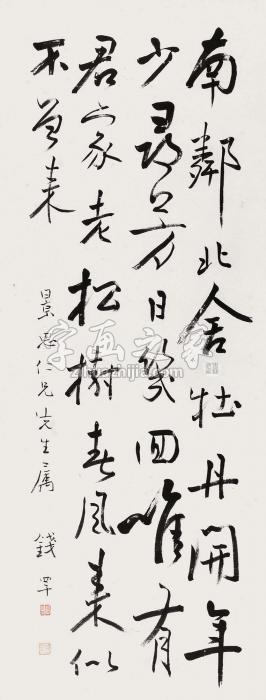 南鄰北舍牡丹開年
少尋芳日幾回唯有
君家老松樹春風來似
不曾來
景仁兄先生属
錢罕
字画之家